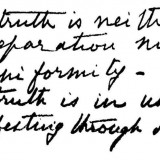 truth is neith
eparation n
ni formity -
truth is in us
esting through a